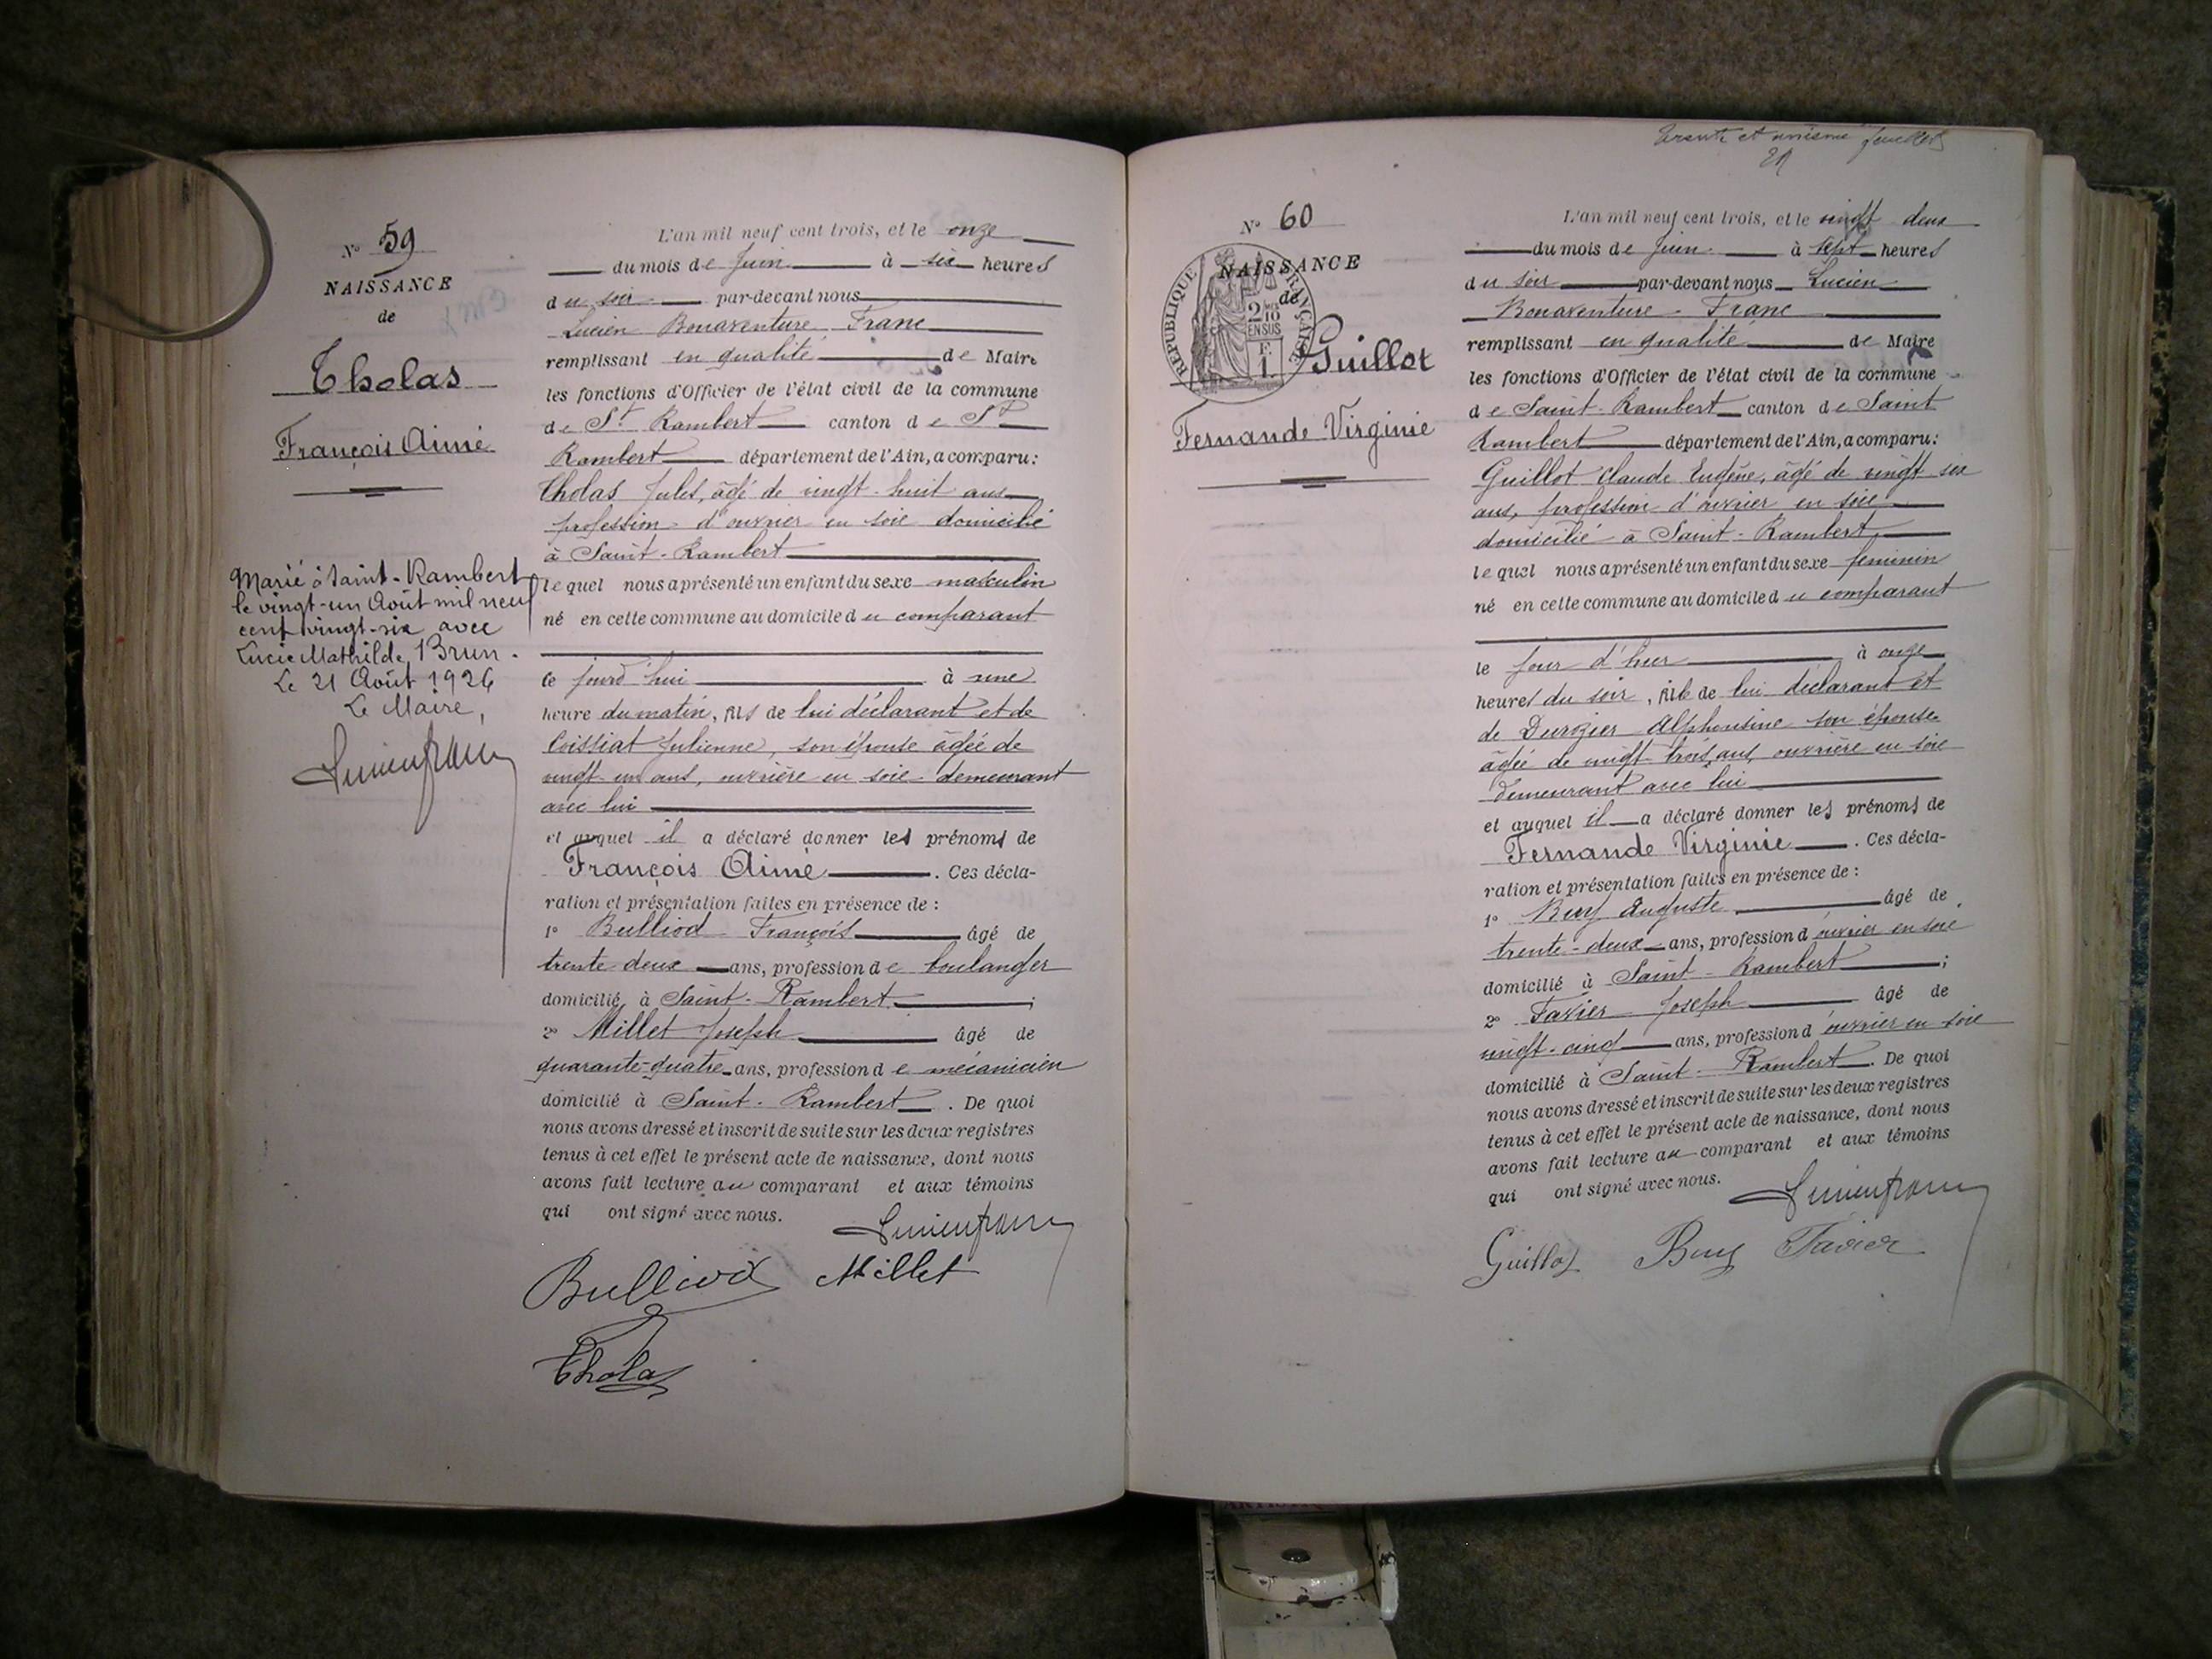 Nº 59
NAISSANCE
de
Tholas
François Aimé
Marié à Saint-Rambert
le vingt-un Août mil neuf
cent vingt-six avec
Lucie Mathilde Brun.
Le 21 Août 1926
Le Maire,
L'an mil neuf cent trois, et le onze
du mois de Juin à six heures
du soir par-devant nous
Lucien Bonaventure Franc
remplissant en qualité de Maire
les fonctions d'Officier de l'état civil de la commune
de St Rambert canton de St
Rambert département de l'Ain, a comparu:
Tholas Jules, âgé de vingt-huit ans
profession d'ouvrier en soie domicilié
à Saint-Rambert
lequel nous a présenté un enfant du sexe masculin
né en cette commune au domicile du comparant
ce jourd'hui à une
heure du matin, fils de lui déclarant et de
Coissiat Julienne, son épouse âgée de
vingt un ans, ouvrière en soie demeurant
avec lui
et auquel il a déclaré donner les prénoms de
François Aimé. Ces décla-
ration et présentation faites en présence de :
1º Bulliod François âgé de
trente deux ans, profession de boulanger
domicilié à Saint-Rambert;
2º Millet Joseph âgé de
quarante-quatre ans, profession de mécanicien
domicilié à Saint-Rambert. De quoi
nous avons dressé et inscrit de suite sur les deux registres
tenus à cet effet le présent acte de naissance, dont nous
avons fait lecture au comparant et aux témoins
qui ont signé avec nous.
Lucien franc
Bulliod Millet
Tholas
Trente et unième feuillet
Nº 60
NAISSANCE
de
RÉPUBLIQUE FRANÇAISE
2/10
EN SUS
F.
1.
Guillot
Fernande Virginie
L'an mil neuf cent trois, et le vingt deux
du mois de Juin à sept heures
du soir par-devant nous Lucien
Bonaventure Franc
remplissant en qualité de Maire
les fonctions d'Officier de l'état civil de la commune
de Saint-Rambert canton de Saint
Rambert département de l'Ain, a comparu:
Guillot Claude Eugène, âgé de vingt six
ans, profession d'ouvrier en soie
domicilié à Saint-Rambert
lequel nous a présenté un enfant du sexe feminin
né en cette commune au domicile du comparant
le jour d'hier à onze
heures du soir, fille de lui déclarant et
de Durozier Alphonsine son épouse
âgée de vingt-trois ans, ouvrière en soie
demeurant avec lui
et auquel il a déclaré donner les prénoms de
Fernande Virginie. Ces décla-
ration et présentation faites en présence de :
1º Buy Auguste âgé de
trente-deux ans, profession d'ouvrier en soie
domicilié à Saint-Rambert;
2º Favier Joseph âgé de
vingt-cinq ans, profession d'ouvrier en soie
domicilié à Saint-Rambert. De quoi
nous avons dressé et inscrit de suite sur les deux registres
tenus à cet effet le présent acte de naissance, dont nous
avons fait lecture au comparant et aux témoins
qui ont signé avec nous.
Lucien franc
Guillot Buy Favier